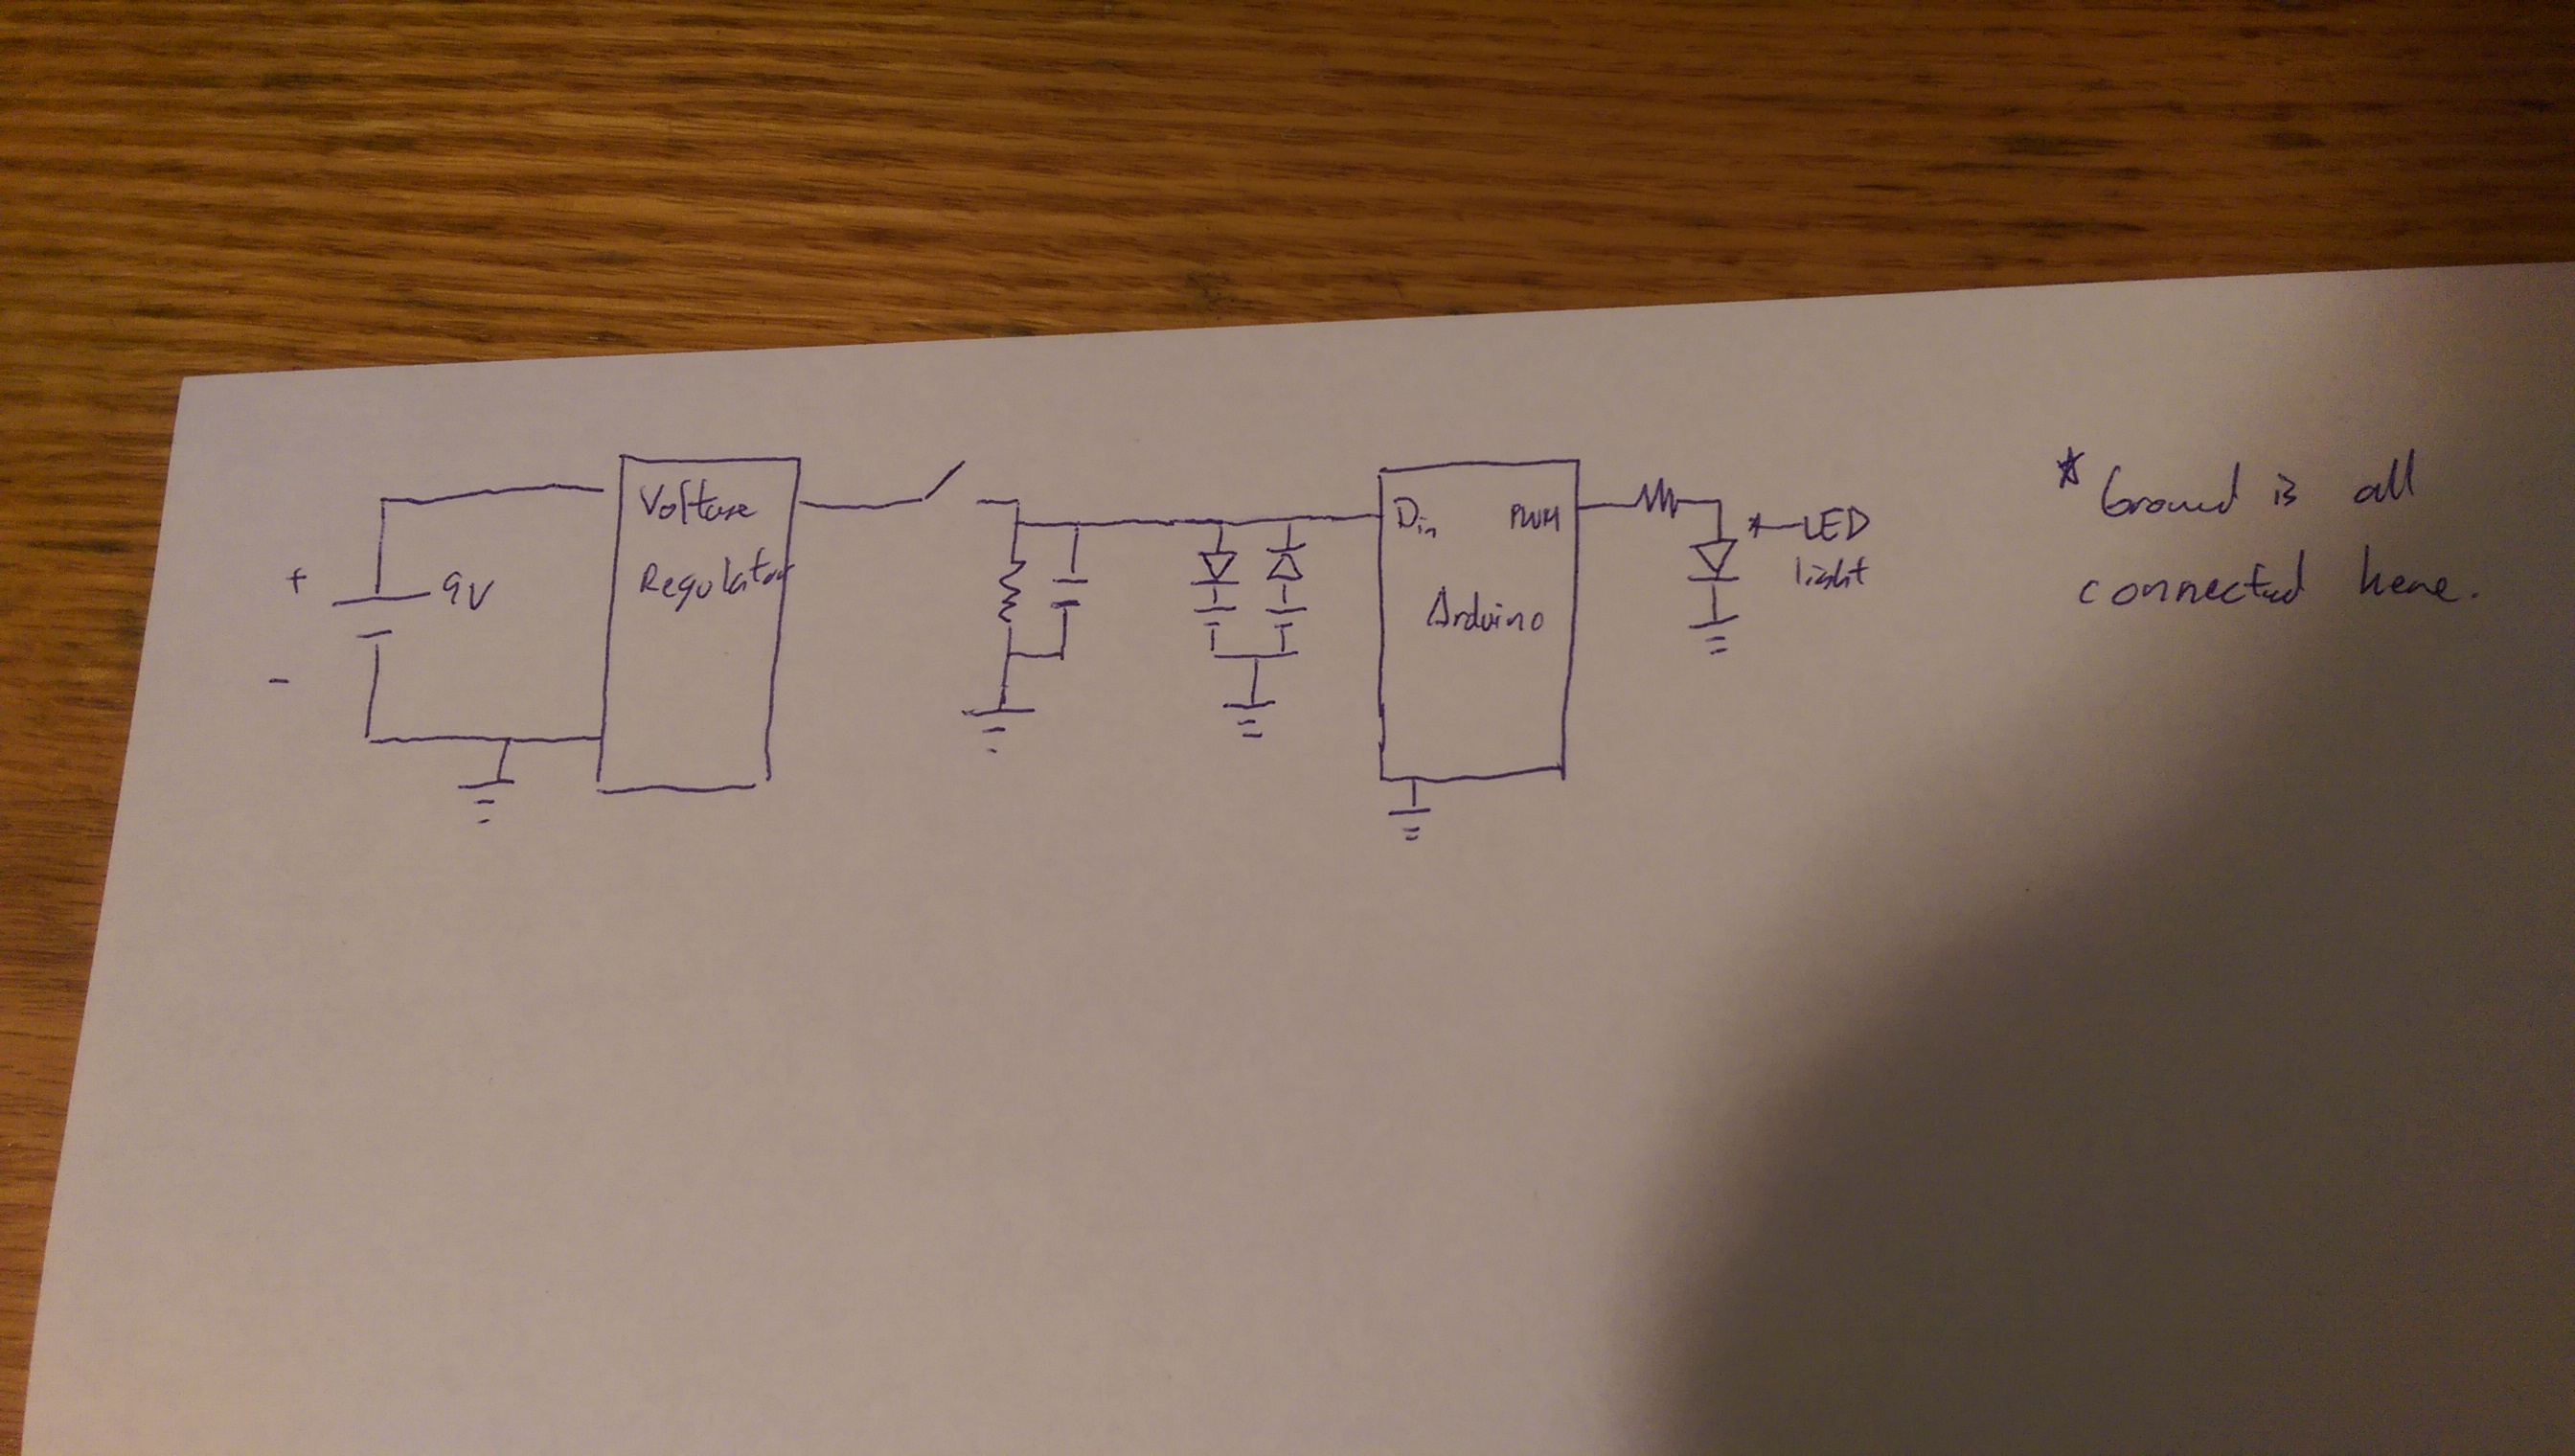 +
9V
-
Voltage
Regulator
Din
PWM
Arduino
LED
light
* Ground is all
connected here.